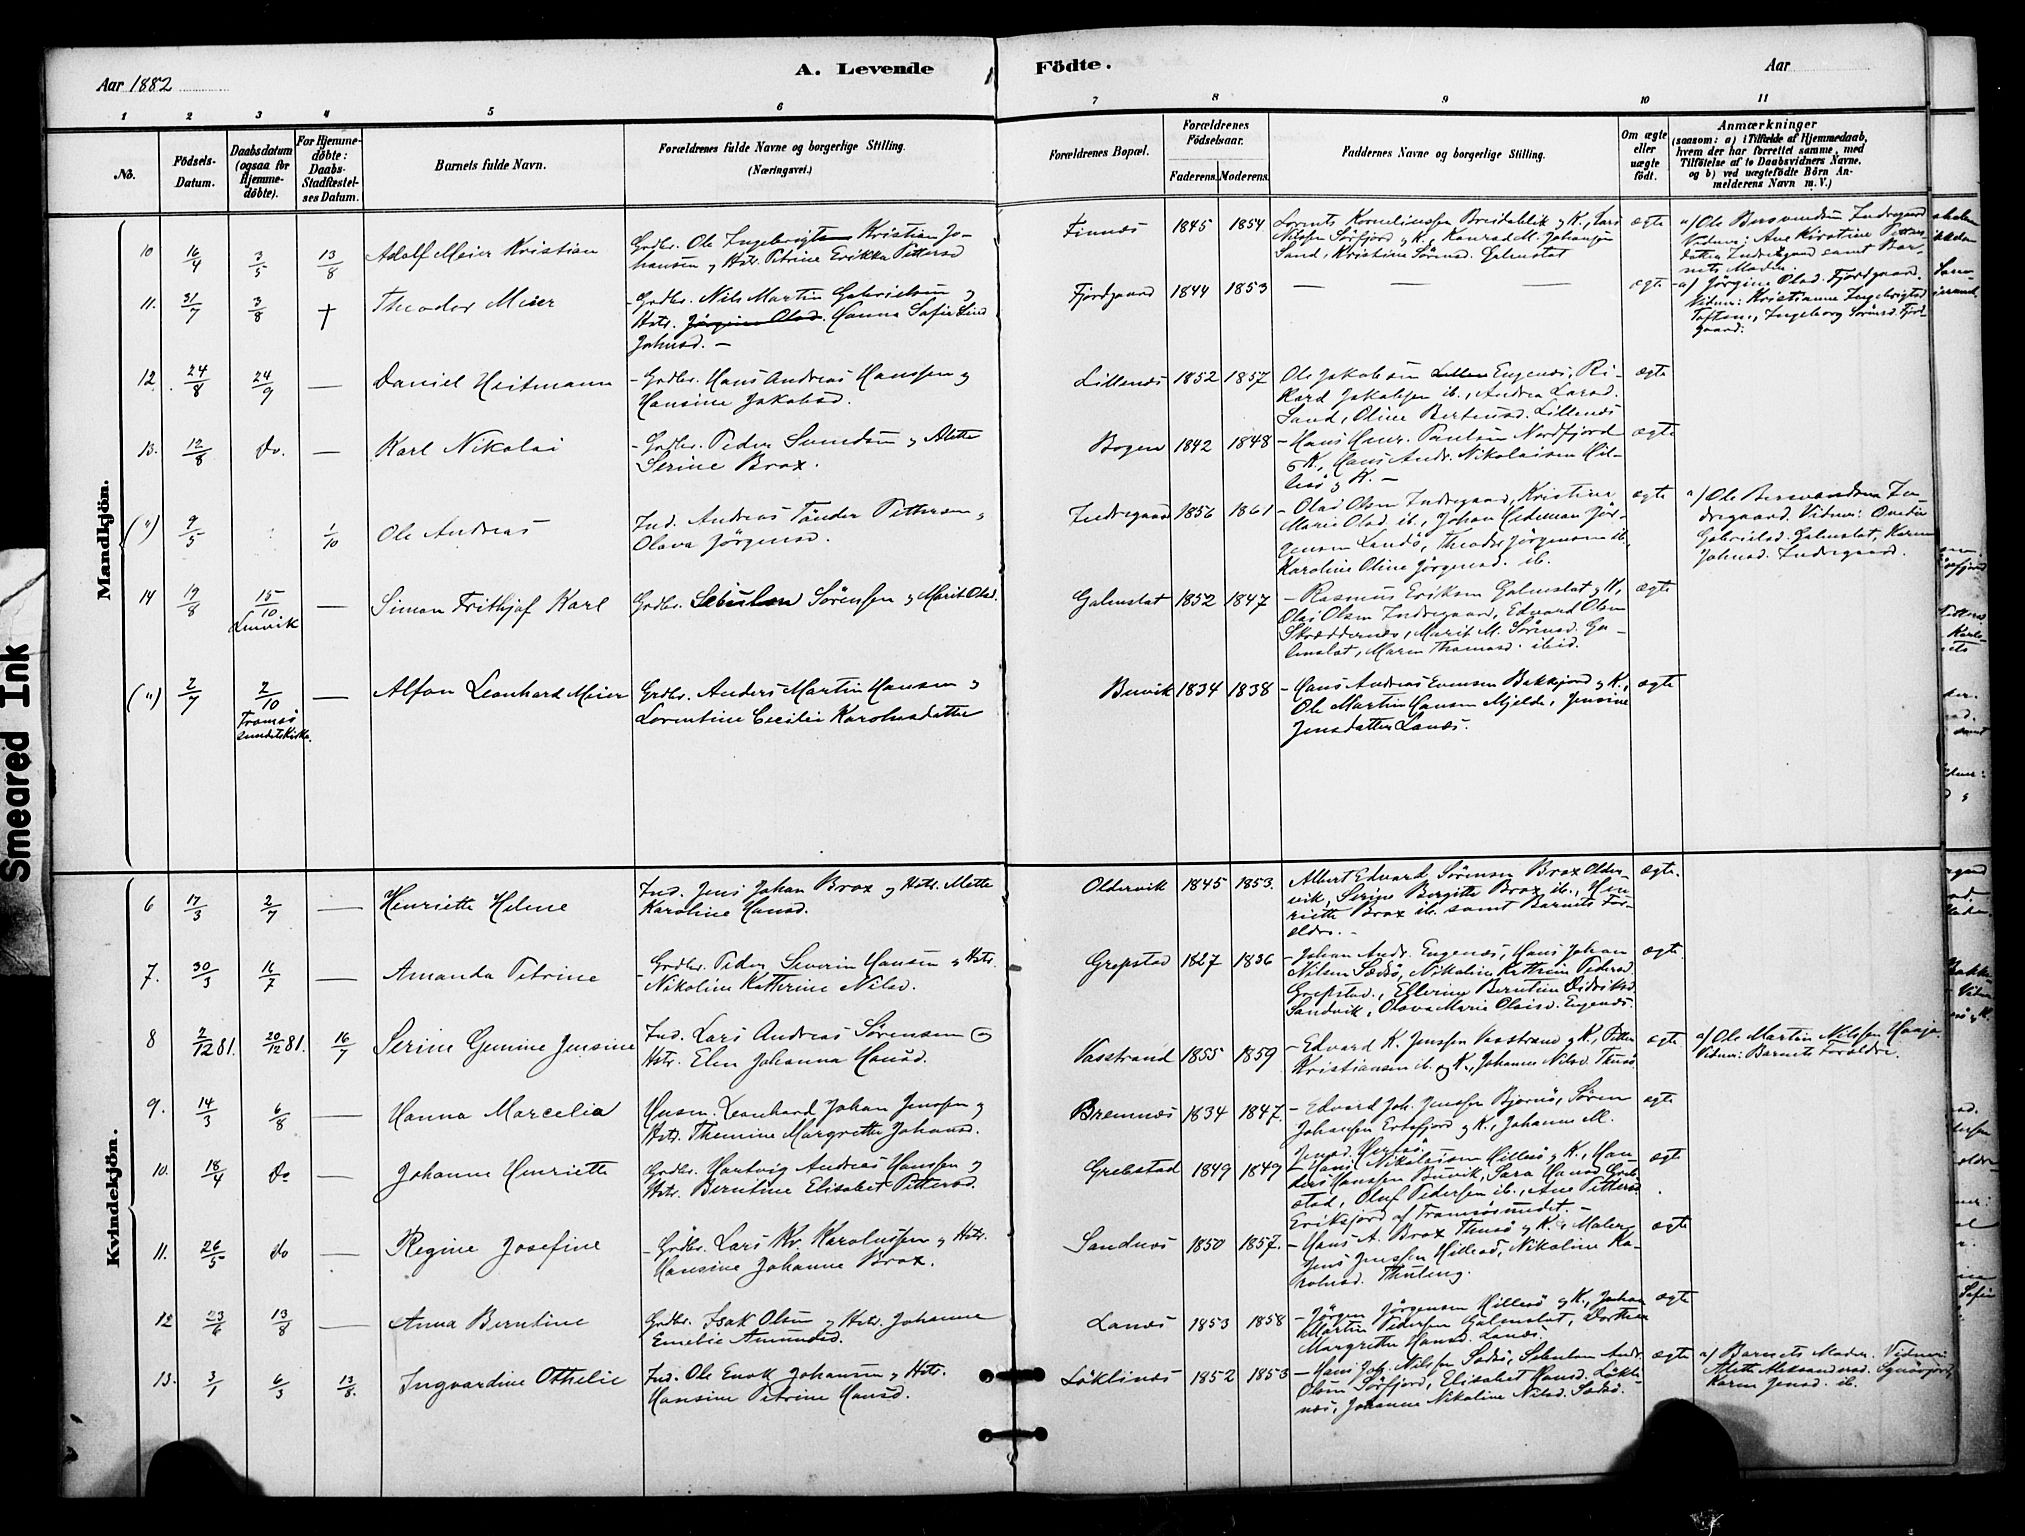 Aar 1882
A. Levende
Födte.
Aar
1 2 3 4 5 6 7 8 9 10 11
No.
Födsels-
Datum.
Daabsdatum
(ogsaa for
Hjemme-
döbte).
For Hjemme-
döbte:
Daabs-
Stadfæstel-
ses Datum.
Barnets fulde Navn.
Forældrenes fulde Navne og borgerlige Stilling.
(Næringsvei.)
Forældrenes Bopæl.
Forældrenes
Födselsaar.
Faderens. Moderens.
Faddernes Navne og borgerlige Stilling.
Om ægte
eller
uægte
födt.
Anmærkninger
(saasom: a) i Tilfælde af Hjemmedaab,
hvem der har forrettet samme, med
Tilföielse af to Daabsvidners Navne.
og b) ved uægtefödte Börn An-
melderens Navn m. V.)
Mandkjön.
10 16/4 3/5 13/8 Adolf Meier Kristian
Grdbr. Ole Ingebrigtsen Kristian Jo-
hansen og Hstr. Petrine Erikka Pettersd
Finnes 1845 1854
Lorents Korneliussen Breidablik og K., Lars
Nilsen Sörfjord og K., Konrad M. Johansen
Sand, Kristine Sörensd. Galmstat
ægte
a) Ole Bersvendsen Indregaard
Vidner: Ane Kirstine Petters-
datter Indregaard samt Bar-
nets Moder.
11. 31/7 3/8 † Theodor Meier
- Grdbr. Nils Martin Gabrielsen og
Hstr. Jörgine Olsd. Hanna Sofie Lind
Johnsd. -
Fjordgaard 1844 1853 — — — ægte
a) Jörgine Olsd. Fjordgaard.
Vidner: Kristianna Ingebrigtsd
Toften, Ingeborg Sörensd. Fjord-
gaard.
12. 24/8 24/9 — Daniel Heitmann
- Grdbr. Hans Andreas Hanssen og
Hansine Jakobsd.
Lillenes 1852 1857
Ole Jakobsen Engenes, Ri-
kard Jakobsen ib., Andrea Larsd.
Sand, Oline Berteusd. Lillenes
ægte
13. 12/8 do. — Karl Nikolai
- Grdbr. Peder Simonsen og Alette
Serine Brox.
Bogen 1842 1848
- Hans Henr. Paulsen Nordfjord
og K., Hans Andr. Nikolaisen Hil-
lesö og K. -
ægte
(") 9/5 1/10 Ole Andreas
Ind. Andreas Tönder Pettersen og
Olava Jörgensd.
Indregaard 1856 1861
- Olai Olsen Indregaard, Kristine
Marie Olsd. ib., Johan Hedeman Jör-
gensen Landö, Theodor Jörgensen ib,
Karoline Oline Jörgensd. ib.
ægte
a) Ole Bersvendsen In-
dregaard. Vidner: Ovedie
Gabrielsd. Galmstat, Karen
Johnsd. Indregaard.
14 19/8 15/10 — Simon Frithjof Karl
Lenvik
Grdbr. Sebulon Sörensen og Marit Olsd.
Galmstat 1852 1847
- Rasmus Eriksen Galmstat og K,
Olai Olsen Indregaard, Edvard Olsen
Skreddernes, Marit M. Sörensd. Ga-
lmstat, Maren Thomasd. ibid.
ægte
(") 2/7 2/10 — Alfon Leonhard Meier
Tromsö
sundets Kirke.
Grdbr. Anders Martin Hansen og
Lorentine Cecilie Karolusdatter
Buvik 1834 1838
- Hans Andreas Evensen Bakkejord og K.,
Ole Martin Hansen Mjelde, Jensine
Jensdatter Lanes.
ægte
Kvindekjön.
6 17/3 2/7 — Henriette Helene
Ind. Jens Johan Brox og Hstr. Mette
Karoline Hansd.
Oldervik 1845 1853.
Albert Edvard Sörensen Brox Older-
vik, Serine Bergitte Brox ib., Hen-
riette Brox ib. samt Barnets For-
eldre. -
ægte.
7. 30/3 16/7 — Amanda Petrine
- Grdbr. Peder Severin Hansen og Hstr.
Nikoline Katterine Nilsd.
Grepstad 1827 1836
- Johan Andr. Engenes, Hans Johan
Nilsen Sædsö, Nikoline Kathrine Pedersd
Grepstad, Ellerine Berntine Didriksd.
Sandvik, Olava Marie Olaisd. Engenes
ægte.
8 2/12 81. 20/12 81. 16/7 Serine Gumine Jensine
Ind. Lars Andreas Sörensen og
Hstr. Elen Johanna Hansd.
Vasstrand 1855 1859
- Edvard K. Jenssen Vasstrand og K., Petter
Kristiansen ib. og K., Johanne Nilsd. Tussö
ægte
a) Ole Martin Nilssen Haaja.
Vidner: Barnets Foreldre.
9. 14/3 6/8 — Hanna Marcelia
Husm. Leonhard Johan Jenssen og
Hstr. Themine Margrethe Johansd.
Bremnes 1834 1847.
- Edvard Joh. Jenssen Bjornö, Sören
Johansen Ersfjord og K., Johanne M.
Jensd. Hersö
ægte
10. 18/4 do — Johanne Henriette
Grdbr. Hartvig Andreas Hanssen og
Hstr. Berntine Elisabet Pettersd.
Grebstad 1849 1849
- Hans Nikolaisen Hillesö og K., Han-
ders Hanssen Buvik, Sara Hansd. Greb-
stad, Oluf Pedersen ib., Ane Pettersd
Eriksfjord af Tromsösundet. -
ægte
11. 26/5 do — Regine Josefine
- Grdbr. Lars Kr. Karolussen og Hstr.
Hansine Johanne Brox.
Sandnes 1850 1857.
- Hans A. Brox Tussö og K., Maler
Jens Jenssen Hillesö, Nikoline Ka-
rolusd. Thuleng.
ægte
12 23/6 13/8 — Anna Berntine
Grdbr. Isak Olsen og Hstr. Johanne
Emelie Amundsd.
Lanes 1853 1858
- Jörgen Jörgensen Hillesö og K., Johan
Martin Pedersen Galmstat, Dorthea
Margrethe Hansd. Lanes.
ægte
13. 3/1 6/3 13/8. Ingvardine Othelie
Ind. Ole Enok Johansen og Hstr.
Hansine Petrine Hansd.
Löklines 1852 1853
- Hans Joh. Nilssen Sædsö, Sebulon Andr.
Olsen Sörfjord, Elisabet Hansd. Lökli-
nes, Johanne Nikoline Nilsd. Sædsö.
ægte
a) Barnets Moder. Vidner:
Alette Aleksandersd.
Karen Jensd. ib.
Smeared Ink